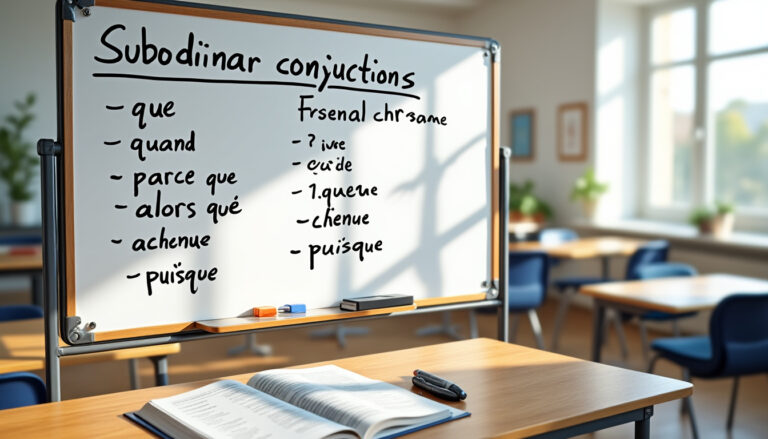 Subodiinar conjuctions
- que
- quand
- parce que
- alors qué
- achenue
- puïsque
Frsenal chrsame
- ? ıvıe
- çuıde
- 1.queue
- chienue
- puïsque